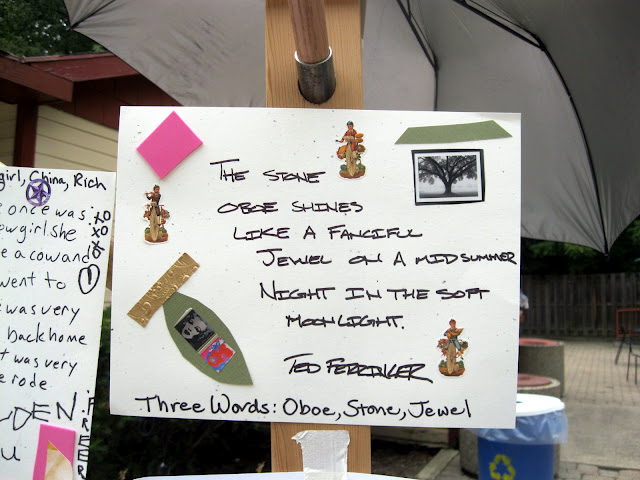 THE STONE
OBOE SHINES
LIKE A FANCIFUL
JEWEL ON A MIDSUMMER
NIGHT IN THE SOFT
MOONLIGHT.
TED
Three Words: Oboe, Stone, Jewel
girl, China, Rich
once was
owgirl. She
a cow and
went to
was very
back home
was very
rode